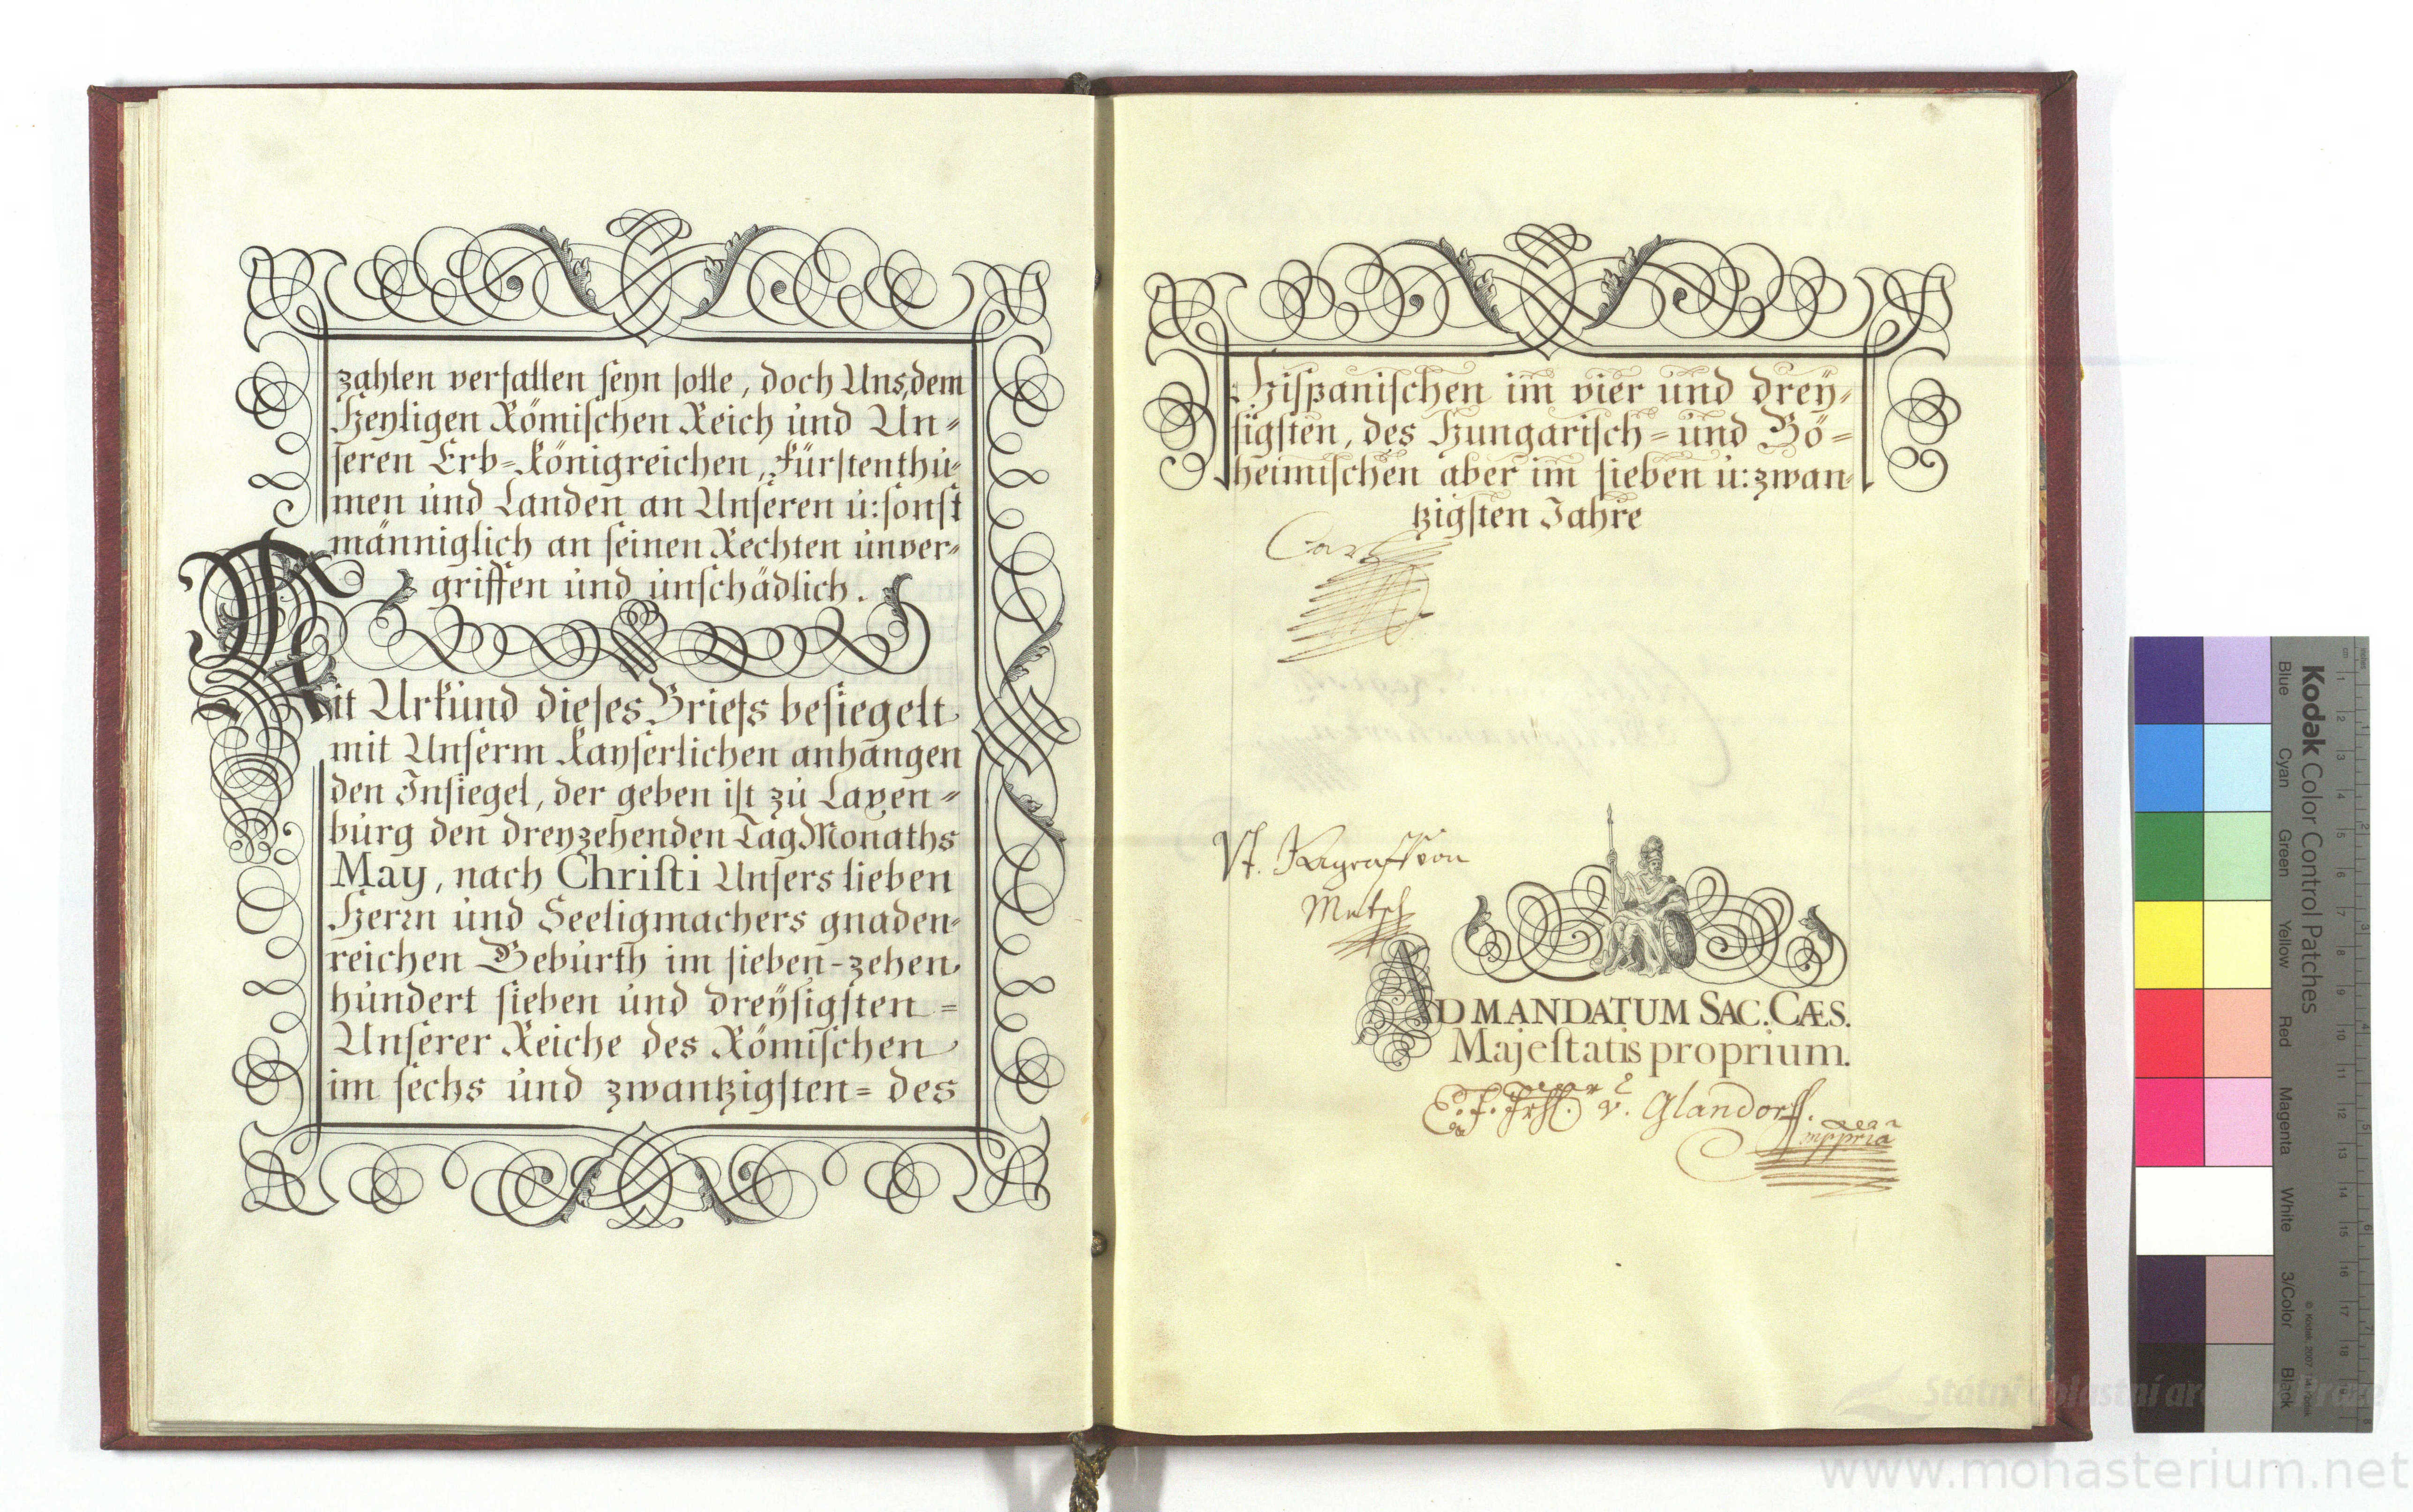 zahlen verfallen seyn solle, doch Uns, dem
Heyligen Römischen Reich und Un-
seren Erb-Königreichen, Fürstenthü-
men und Landen an Unseren u: sonst
männiglich an seinen Rechten unver-
griffen und unschädlich.
Mit Urkund dieses Briefs besiegelt
mit Unserm Kayserlichen anhangen
den Insiegel, der geben ist zu Laxen-
burg den dreyzehenden Tag Monaths
May, nach Christi Unsers lieben
Herrn und Seeligmachers gnaden-
reichen Geburth im sieben-zehen
hundert sieben und dreysigsten =
Unserer Reiche des Römischen
im sechs und zwantzigsten = des
Hispanischen im vier und drey-
sigsten, des Hungarisch = und Bö=
heimischen aber im sieben u: zwan-
tzigsten Jahre
Carl
Vt. von
Metsch
AD MANDATUM SAC. CÆS.
Majestatis proprium.
E. F. v. Glandorff.
mppria
Kodak Color Control Patches
Blue
Cyan
Green
Yellow
Red
Magenta
White
3/Color
Black
© Kodak 2007
Státní oblastní archiv Praze
www.monasterium.net